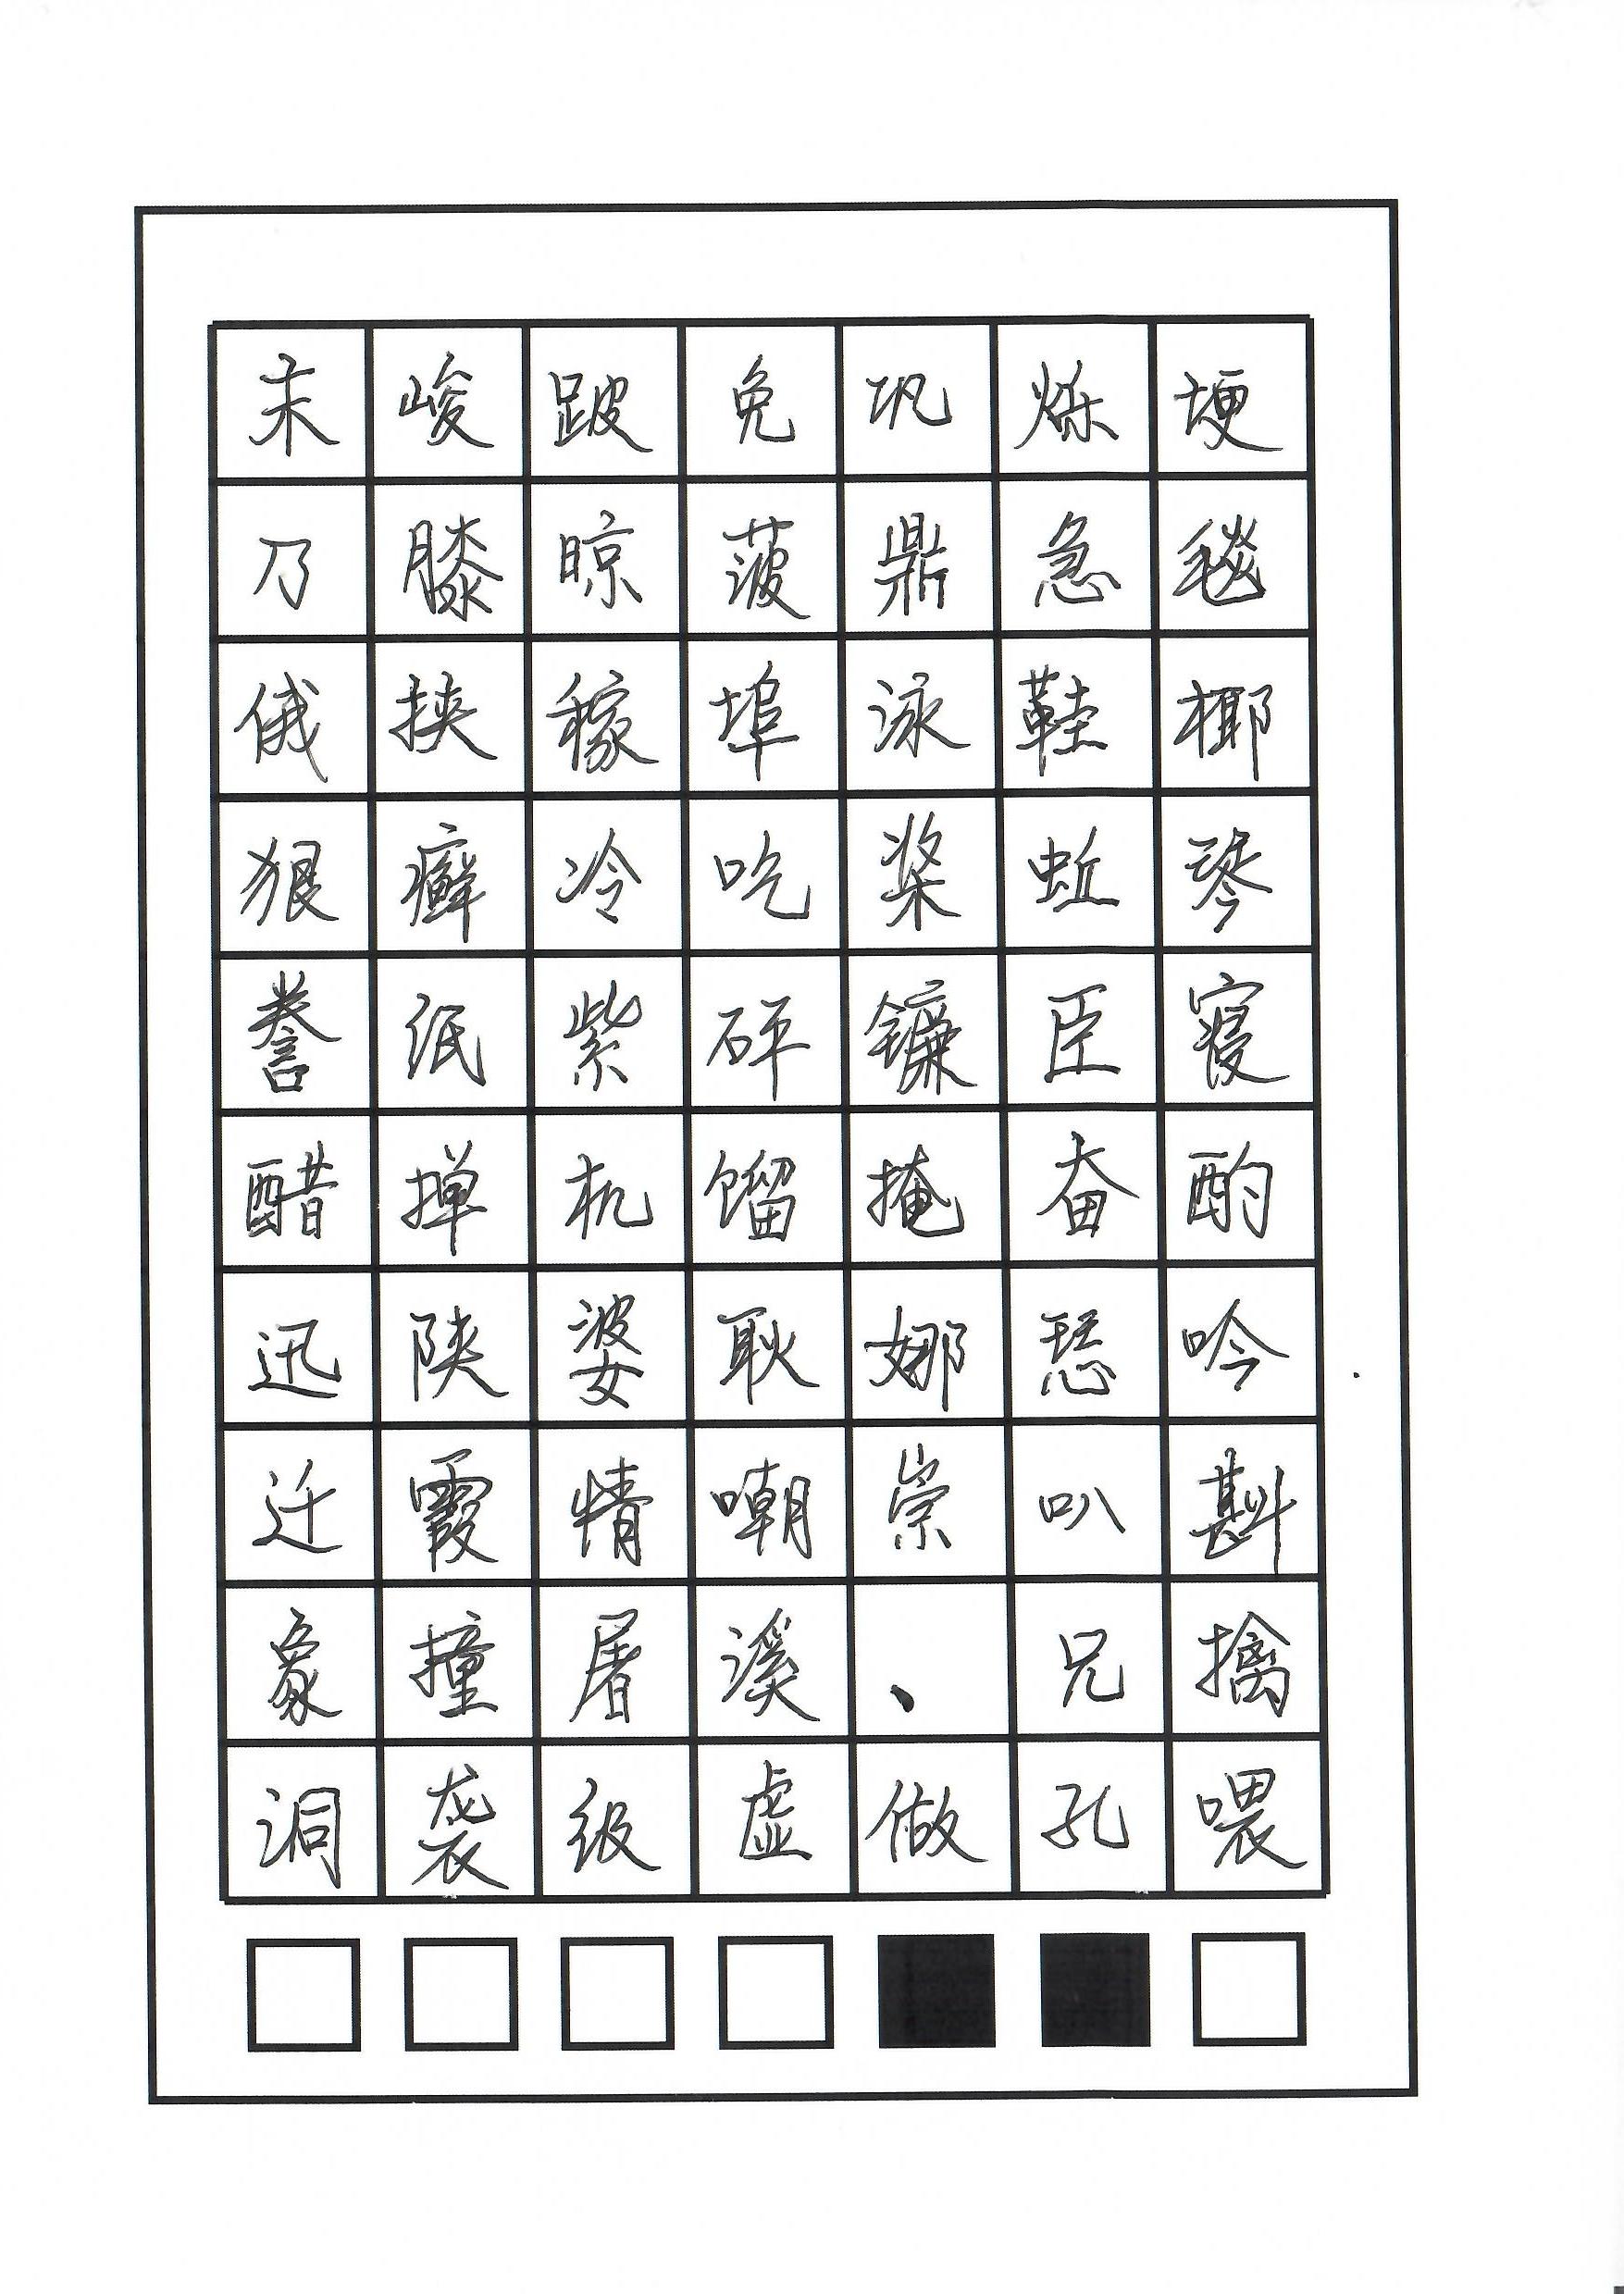 末峻跛免巩烁埂
乃膝晾菠鼎急毯
俄挟稼埠泳鞋椰
狠癣冷吃桨蚯琴
誊纸紫砰镰臣寝
醋掸机馏掩奋酌
迅陕婆耿娜惹吟
迁霞情嘲崇叭斟
象撞屠溪、兄擒
洞袭级虚做孔喂